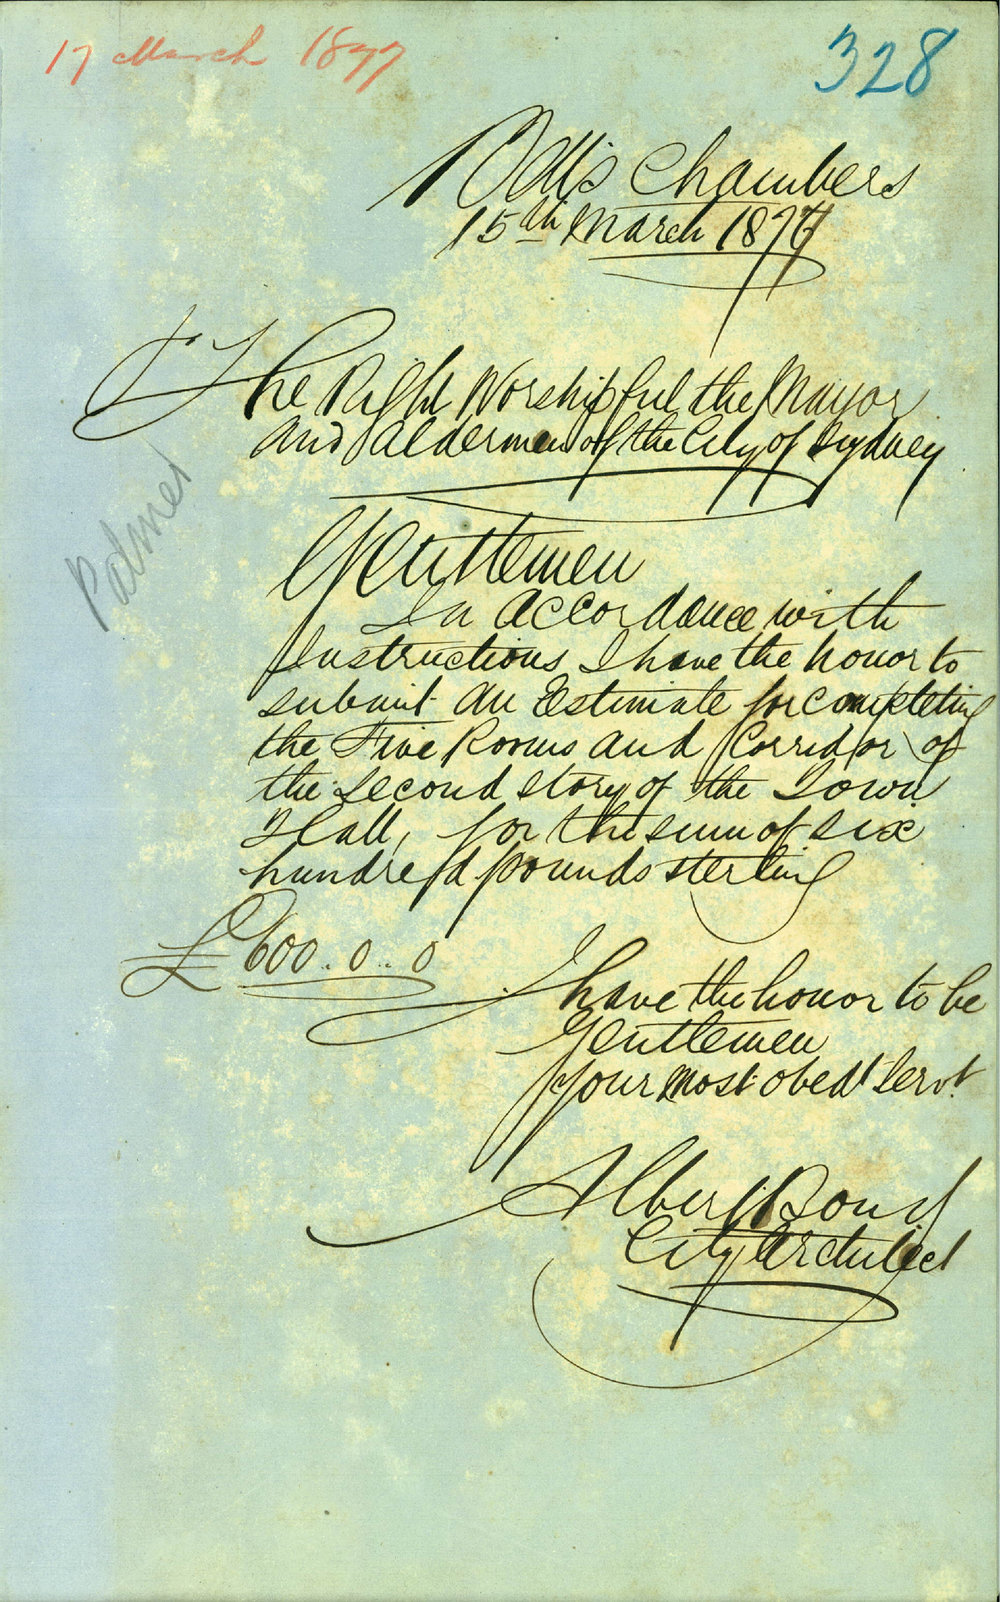 17 March 1877
328
Bell's Chambers
15th March 1877
The Right Worshipful the Mayor
and Aldermen of the City of Sydney
Palmer
Gentlemen
In accordance with
Instructions I have the honor to
submit an Estimate for completing
the Five Rooms and Corridor of
the Second story of the Town
Hall, for the sum of six
hundred pounds sterling
£600..0..0
I have the honor to be
Gentlemen
Your most obedt servt.
Albert Bond
City Architect